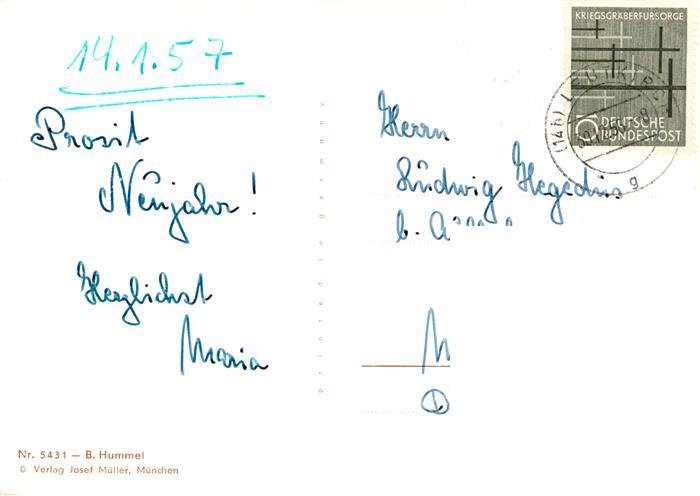 14.1.57
Prosit
Neujahr!
Herzlichst
Maria
Nr. 5431 — B. Hummel
© Verlag Josef Müller, München
printed in germany
KRIEGSGRÄBERFÜRSORGE
10
DEUTSCHE
BUNDESPOST
(14b)
g
Herrn
Ludwig Hegedüs
b.